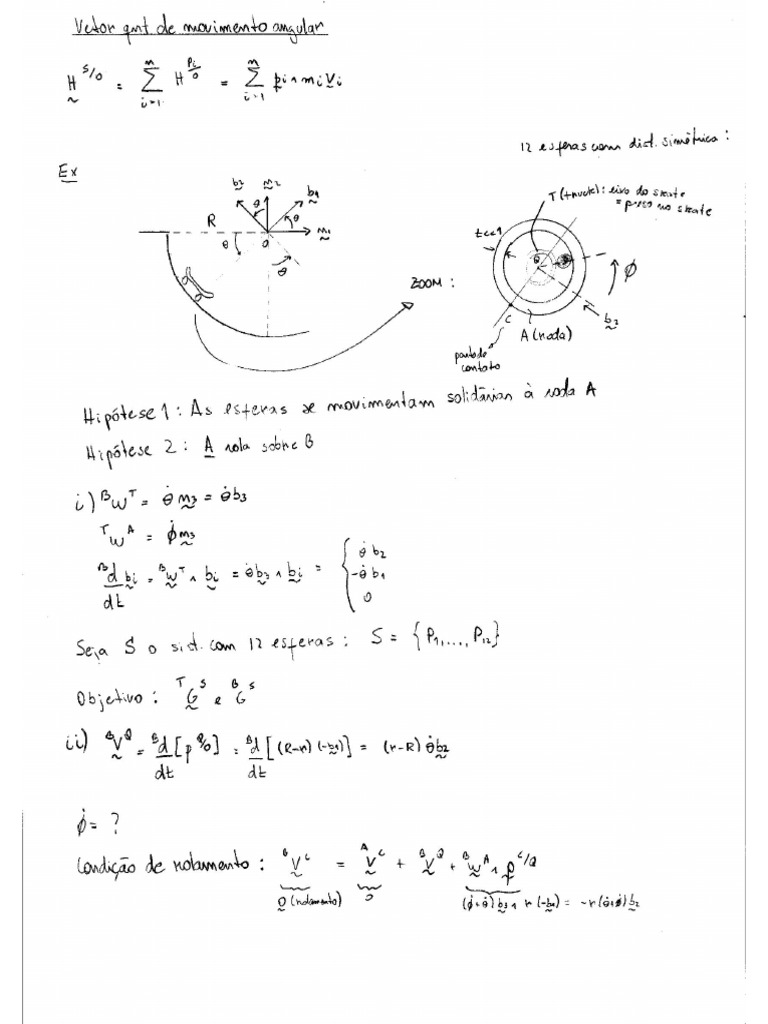 Vetor qnt. de movimento angular
H^{S/O} = Σ_{i=1}^{n} H^{Pi/O} = Σ_{i=1}^{n} pi ∧ mi Vi
12 esferas com dist. simétrica:
Ex
b2 n2 b1
θ θ
R
θ O n1
θ
T (truck): eixo do skate
= preso no skate
t<<1
Q
ϕ
ZOOM:
b2
C
A (roda)
ponto de
contato
Hipótese 1: As esferas se movimentam solidárias à roda A
Hipótese 2: A rola sobre B
i) ^B W^T = θ̇ n3 = θ̇ b3
^T W^A = ϕ̇ n3
^B d/dt bi = ^B W^T ∧ bi = θ̇ b3 ∧ bi = { θ̇ b2
-θ̇ b1
0
Seja S o sist. com 12 esferas: S = {P1, ..., P12}
Objetivo: ^T G^S e ^B G^S
ii) ^B V^Q = ^B d/dt [p^{Q/O}] = ^B d/dt [(R-r)(-b1)] = (r-R) θ̇ b2
ϕ̇ = ?
Condição de rolamento: ^B V^C = ^A V^C + ^B V^Q + ^B W^A ∧ p^{C/Q}
0 (rolamento) 0 (ϕ̇+θ̇) b3 ∧ r(-b1) = -r(θ̇+ϕ̇) b2